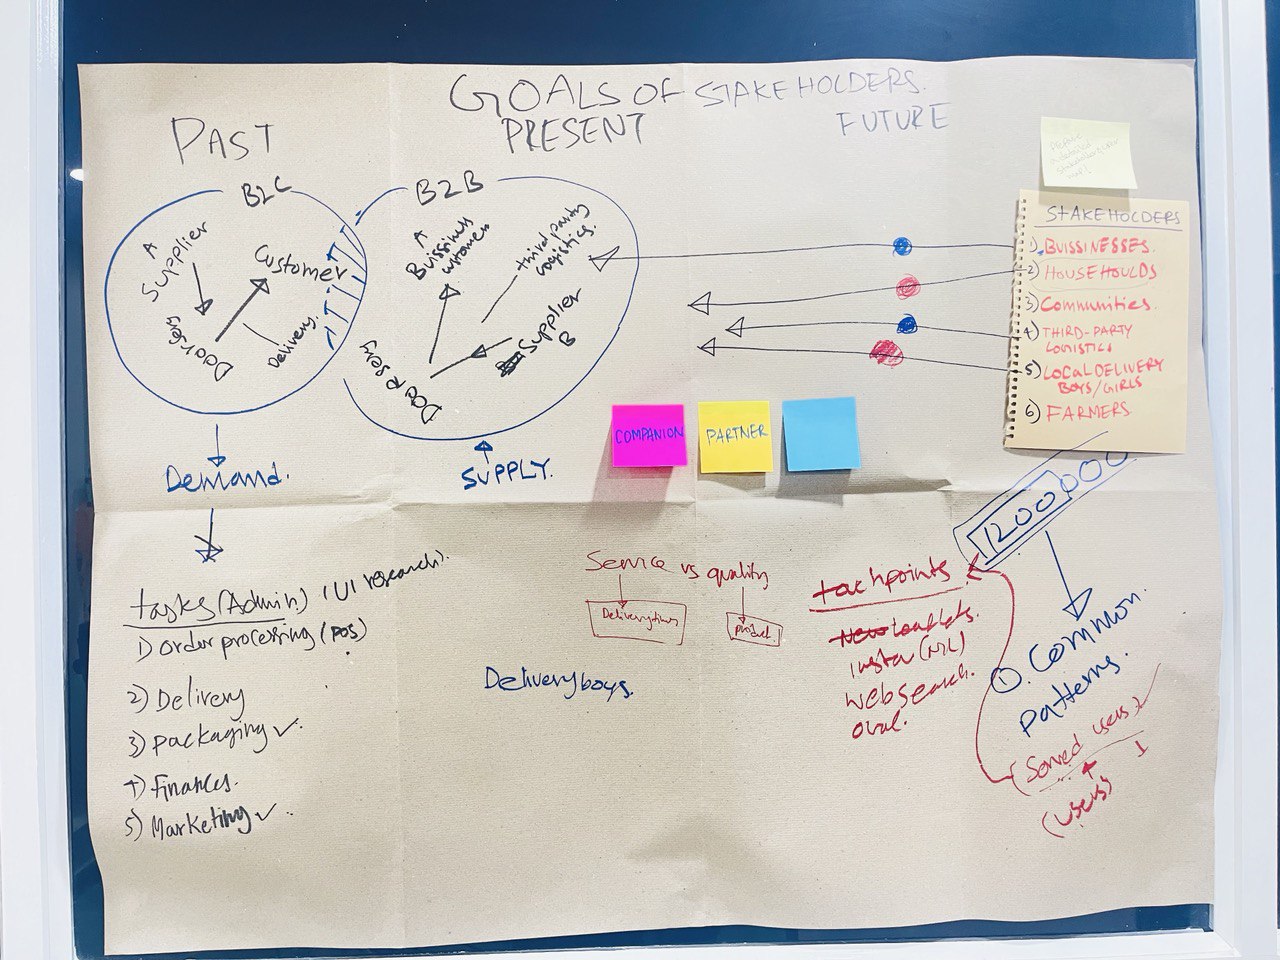 GOALS OF STAKEHOLDERS.
PAST
PRESENT
FUTURE
B2C
A
Supplier
Customer
Doorsey
Delivery.
B2B
A
Buissiness
customers
third party
logistics.
Supplier
B
Doorsey
STAKEHOLDERS
1) BUISSINESSES.
2) HOUSEHOULDS
3) Communities.
4) THIRD-PARTY
LOGISTICS
5) LOCAL DELIVERY
BOYS/GIRLS
6) FARMERS.
COMPANION
PARTNER
Demand.
SUPPLY.
1200000
tasks (Admin) (UI research).
1) order processing (POS)
2) Delivery
3) packaging ✓.
4) finances.
5) Marketing ✓.
Service vs quality
Delivery times
product.
Deliveryboys.
touchpoints.
leaflets.
insta (NIL)
websearch.
oral.
① Common
patterns.
(Served users) ✓
1
(users)